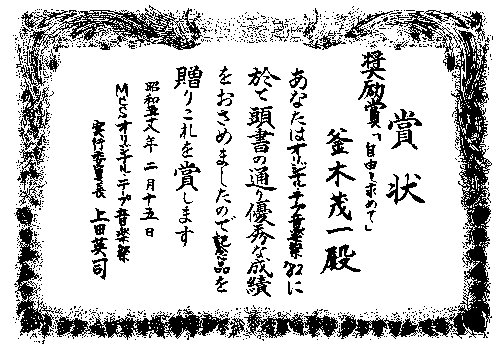 賞状
奨励賞「自由を求めて」
釜木茂一殿
あなたはオリジナルテープ音楽祭'82に
於て頭書の通り優秀な成績
をおさめましたので記念品を
贈りこれを賞します
昭和五十八年二月十五日
MCSオリジナルテープ音楽祭
実行委員長 上田英司